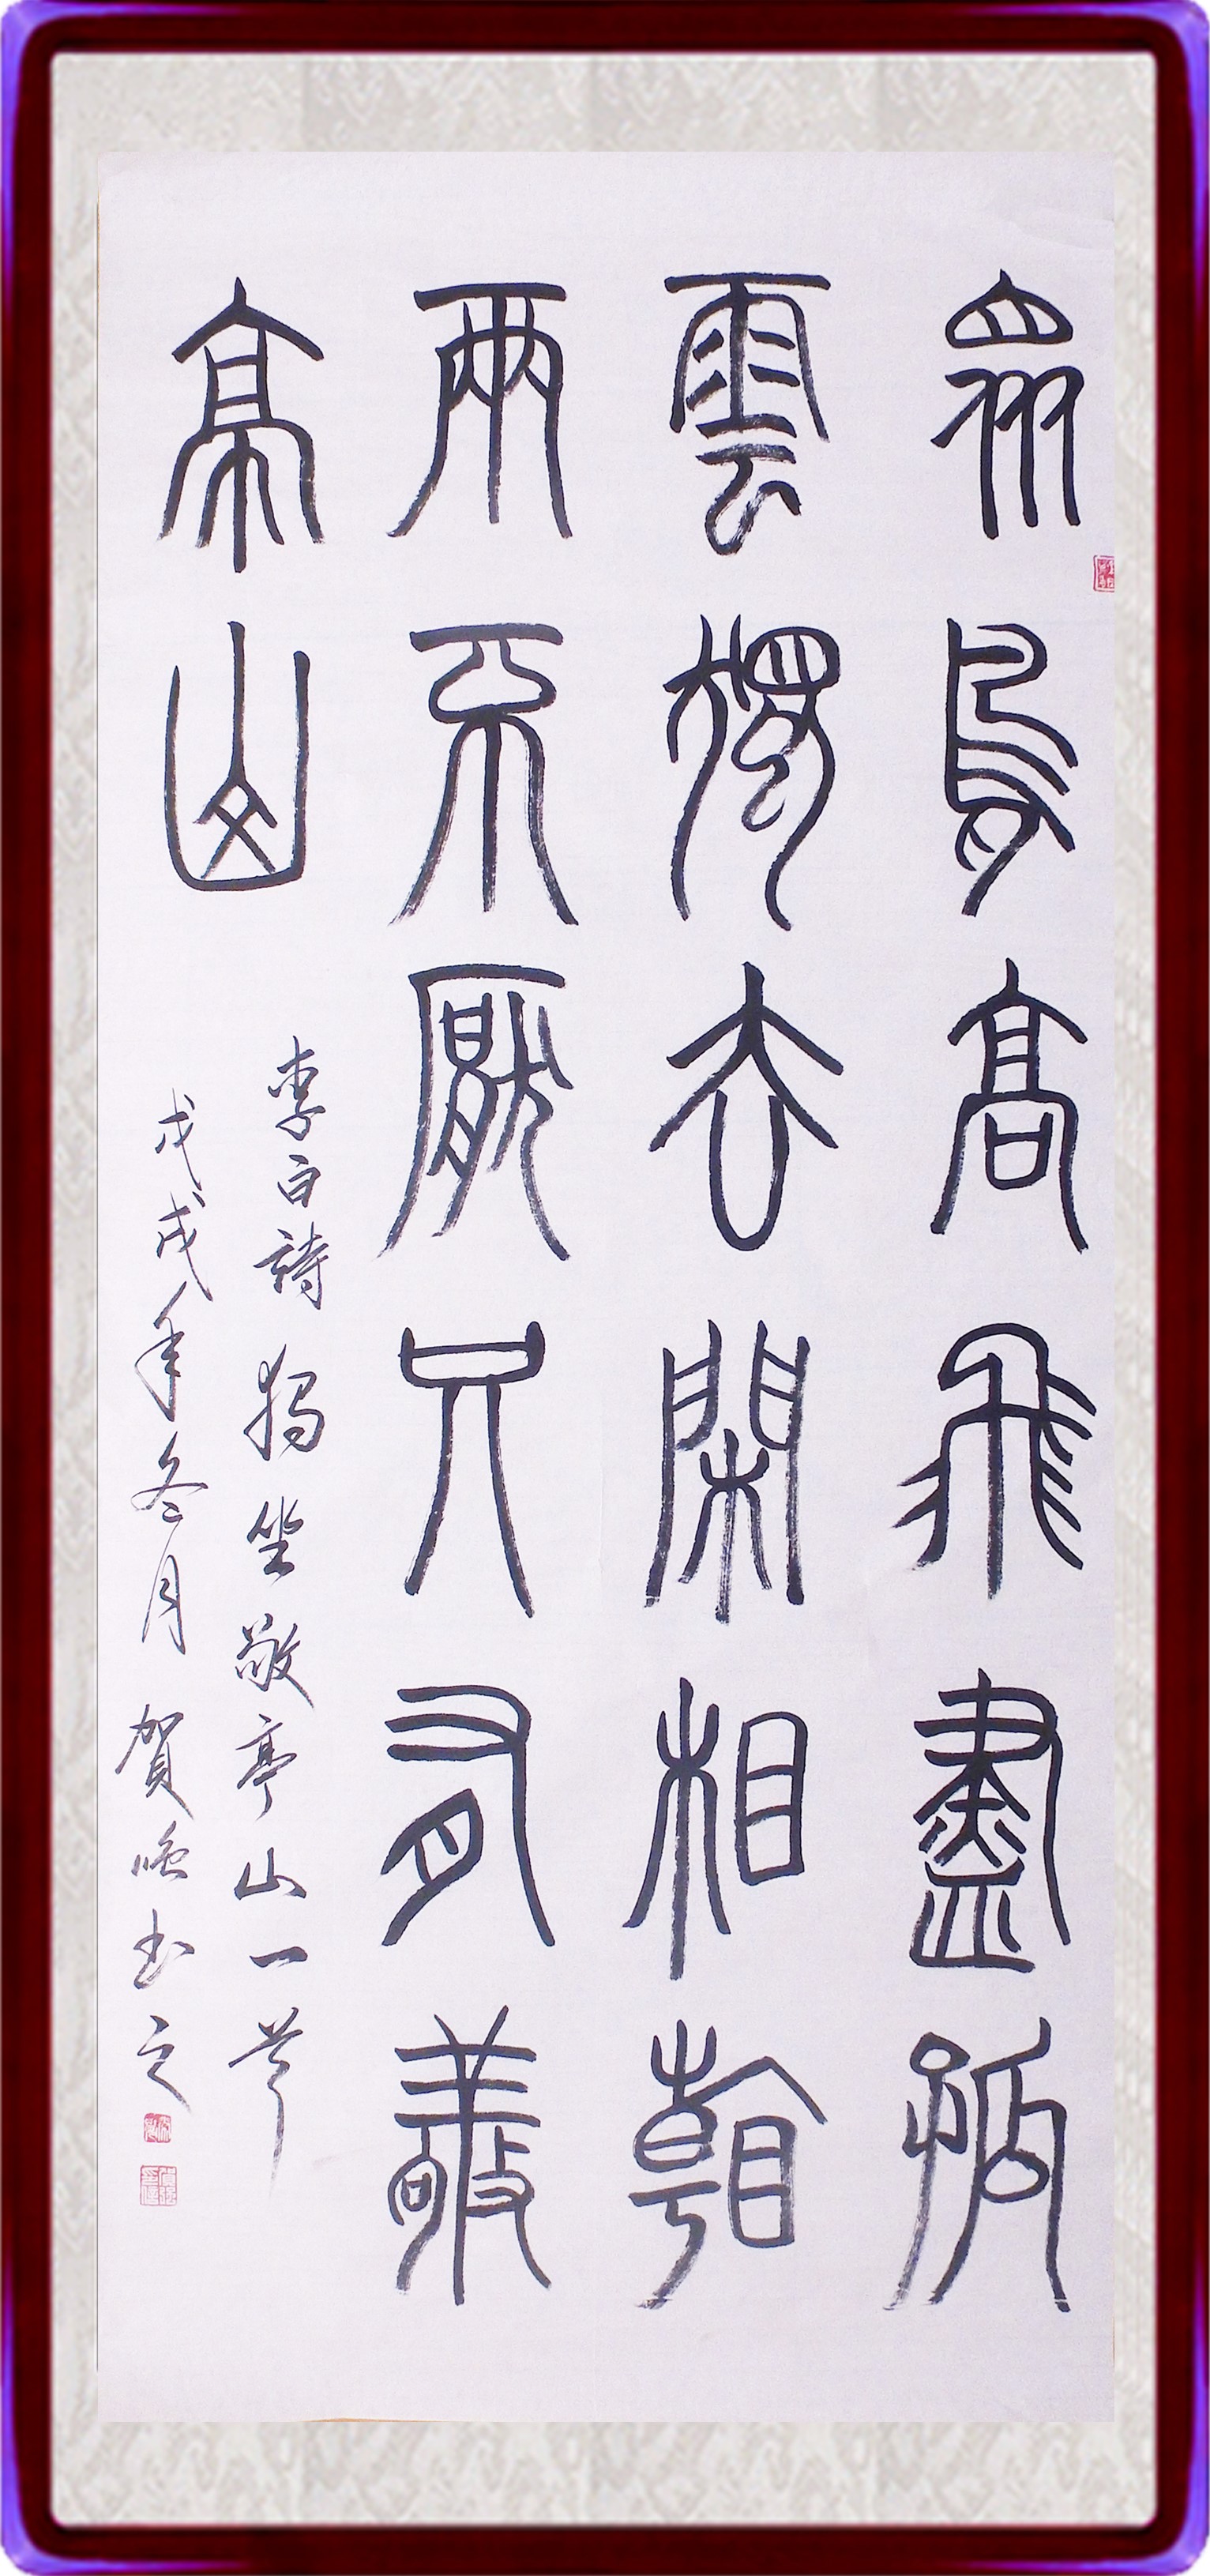 眾鳥高飛盡孤
雲獨去閑相看
兩不厭只有敬
亭山
李白詩 獨坐敬亭山一首
戊戌年冬月 賀书之